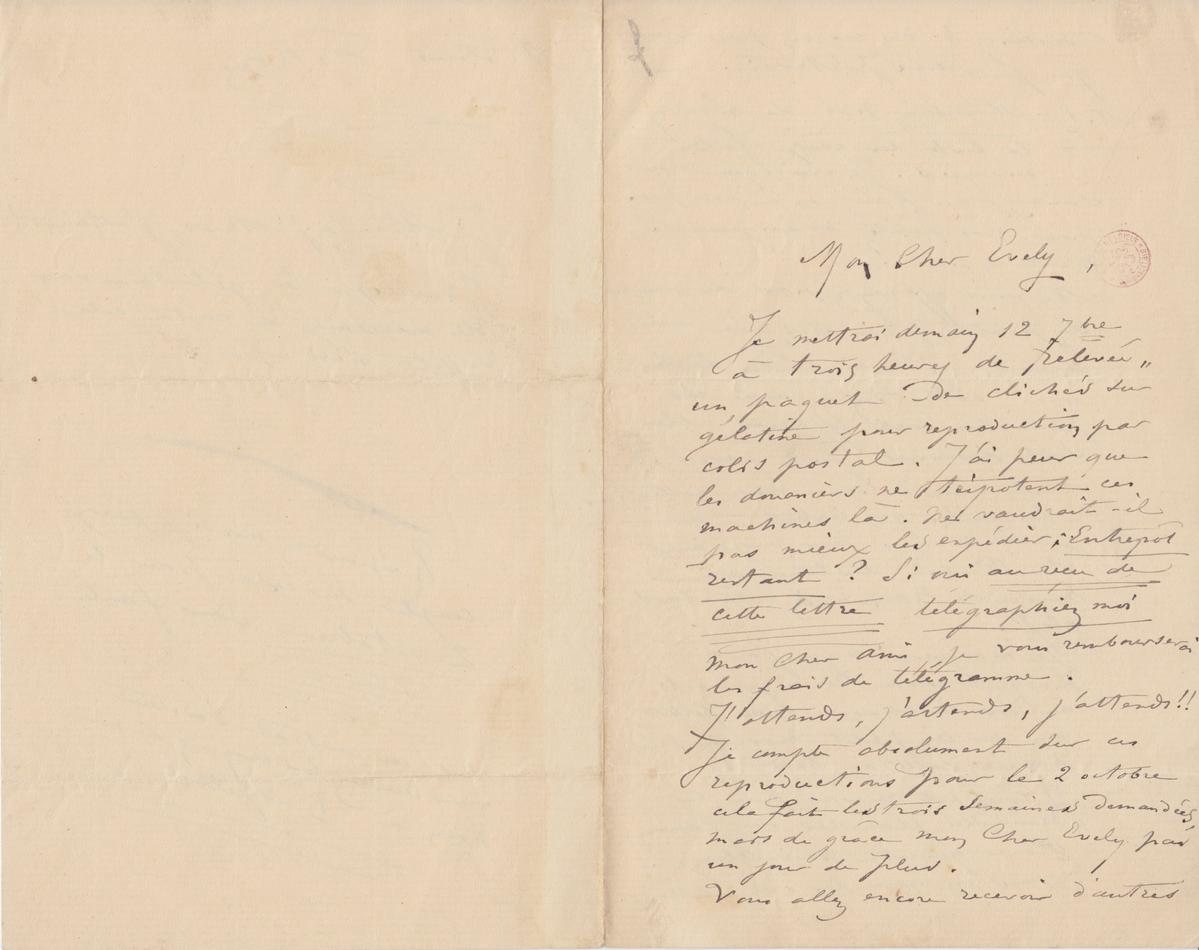 Mon Cher Evely,
Je mettrai demain 12 7bre
à trois heures de "relevée"
un paquet de clichés sur
gélatine pour reproduction par
colis postal. J'ai peur que
les douaniers ne tripotent ces
machines là. Ne vaudrait-il
pas mieux les expédier: Entrepôt
restant? Si oui au reçu de
cette lettre télégraphiez moi
mon cher ami je vous rembourserai
les frais de télégramme.
J'attends, j'attends, j'attends!!
Je compte absolument sur ces
reproductions pour le 2 octobre
cela fait les trois semaines demandées,
mais de grâce mon Cher Evely pas
un jour de plus.
Vous allez encore recevoir d'autres